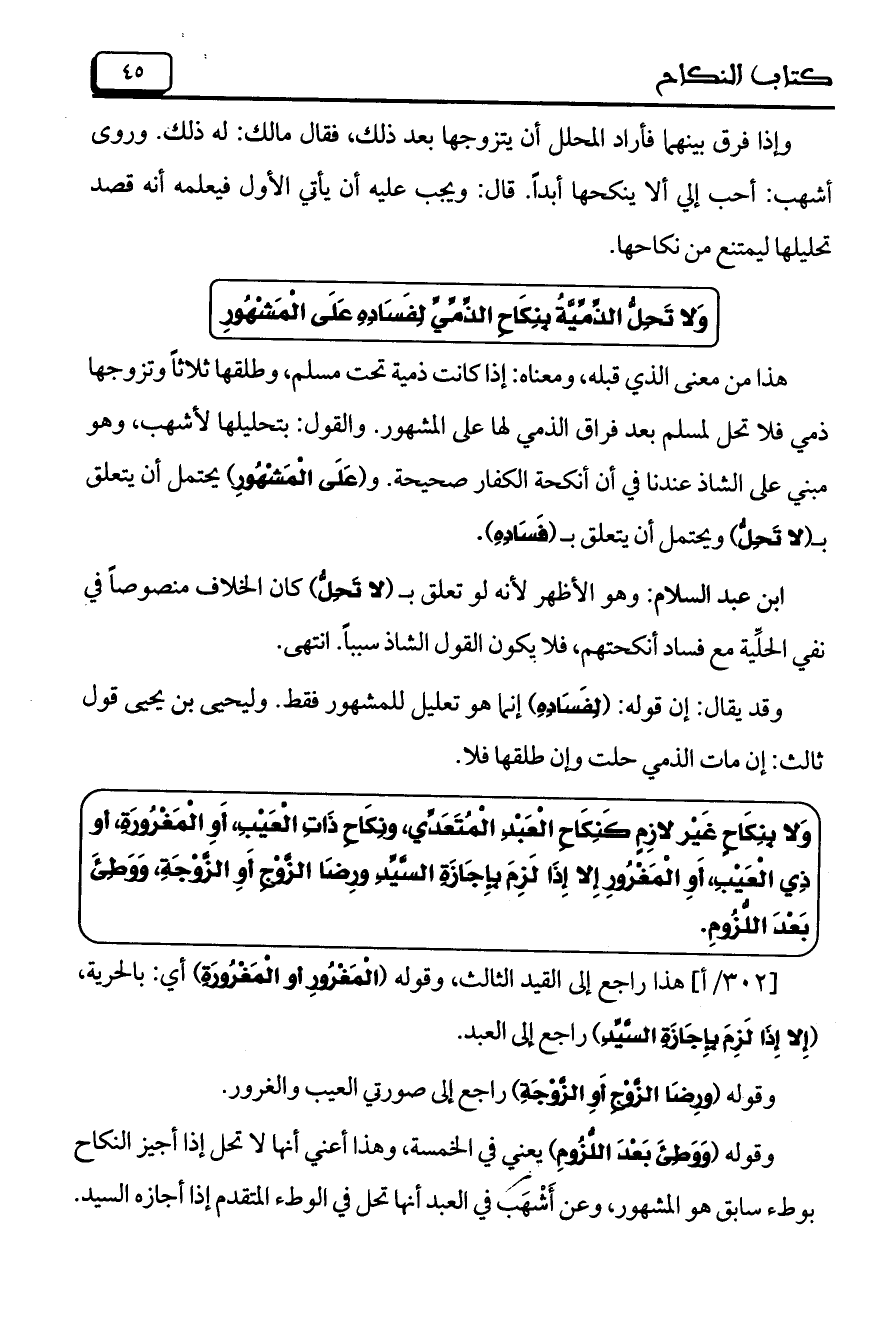 كتاب النكاح
٤٥
وإذا فرق بينهما فأراد المحلل أن يتزوجها بعد ذلك، فقال مالك: له ذلك. وروى
أشهب: أحب إلي ألا ينكحها أبداً. قال: ويجب عليه أن يأتي الأول فيعلمه أنه قصد
تحليلها ليمتنع من نكاحها.
وَلا تَحِلُّ الذِّمِّيَّةُ بِنِكَاحِ الذِّمِّيِّ لِفَسَادِهِ عَلَى الْمَشْهُورِ
هذا من معنى الذي قبله، ومعناه: إذا كانت ذمية تحت مسلم، وطلقها ثلاثاً وتزوجها
ذمي فلا تحل لمسلم بعد فراق الذمي لها على المشهور. والقول: بتحليلها لأشهب، وهو
مبني على الشاذ عندنا في أن أنكحة الكفار صحيحة. و(عَلَى الْمَشْهُورِ) يحتمل أن يتعلق
بـ(لا تَحِلُّ) ويحتمل أن يتعلق بـ (فَسَادِهِ).
ابن عبد السلام: وهو الأظهر لأنه لو تعلق بـ (لا تَحِلُّ) كان الخلاف منصوصاً في
نفي الحلِّية مع فساد أنكحتهم، فلا يكون القول الشاذ سبباً. انتهى.
وقد يقال: إن قوله: (لِفَسَادِهِ) إنما هو تعليل للمشهور فقط. وليحيى بن يحيى قول
ثالث: إن مات الذمي حلت وإن طلقها فلا.
وَلا بِنِكَاحٍ غَيْرِ لازِمٍ كَنِكَاحِ الْعَبْدِ الْمُتَعَدِّي، ونِكَاحِ ذَاتِ الْعَيْبِ، أَوِ الْمَغْرُورَةِ، أو
ذِي الْعَيْبِ، أَوِ الْمَغْرُورِ إِلا إِذَا لَزِمَ بِإِجَازَةِ السَّيِّدِ ورِضَا الزَّوْجِ أَوِ الزَّوْجَةِ، وَوَطِئَ
بَعْدَ اللُّزُومِ.
[٣٠٢/ أ] هذا راجع إلى القيد الثالث، وقوله (الْمَغْرُورِ أو الْمَغْرُورَةِ) أي: بالحرية،
(إِلا إِذَا لَزِمَ بِإِجَازَةِ السَّيِّدِ) راجع إلى العبد.
وقوله (ورِضَا الزَّوْجِ أَوِ الزَّوْجَةِ) راجع إلى صورتي العيب والغرور.
وقوله (وَوَطِئَ بَعْدَ اللُّزُومِ) يعني في الخمسة، وهذا أعني أنها لا تحل إذا أجيز النكاح
بوطء سابق هو المشهور، وعن أَشْهَبَ في العبد أنها تحل في الوطء المتقدم إذا أجازه السيد.